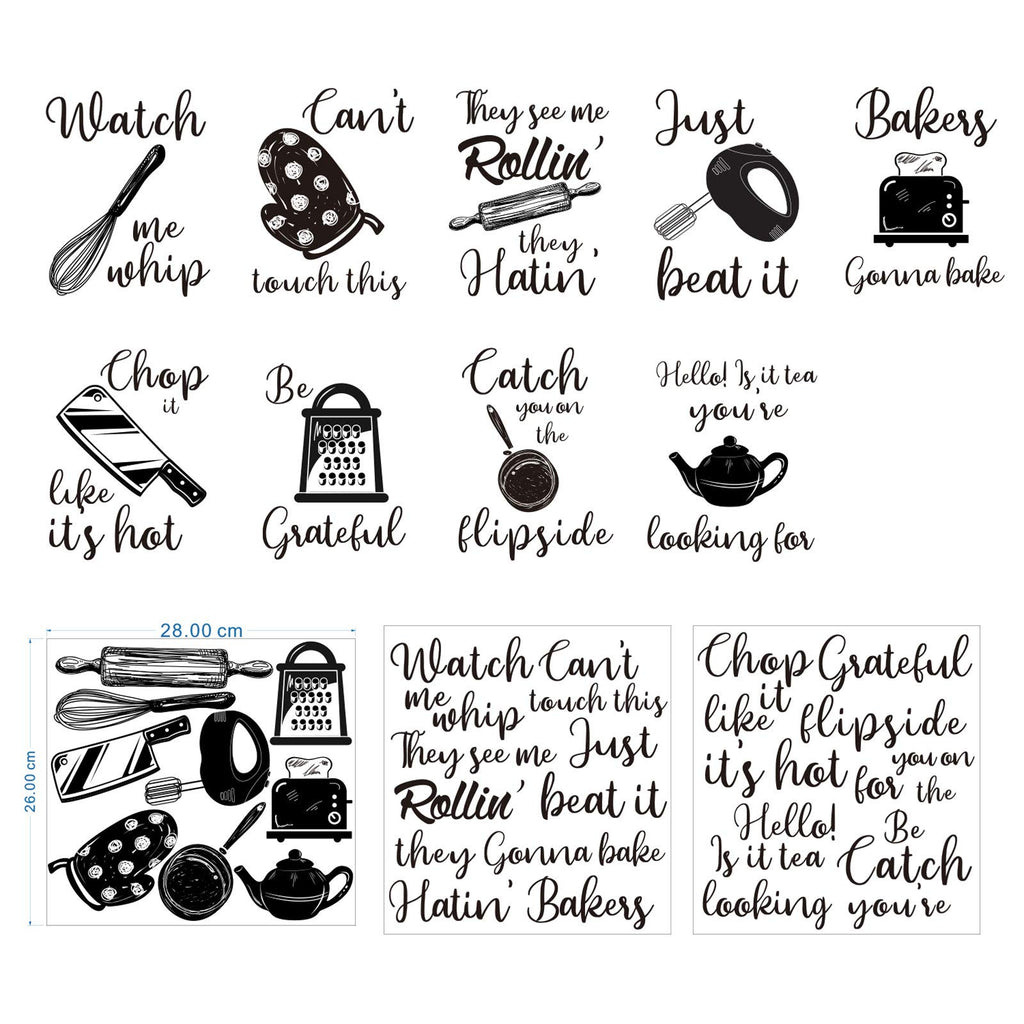 Watch
me
whip
Can't
touch this
They see me
Rollin'
they
Hatin'
Just
beat it
Bakers
Gonna bake
Chop
it
like
it's hot
Be
Grateful
Catch
you on
the
flipside
Hello! Is it tea
you're
looking for
28.00 cm
26.00 cm
Watch Can't
me
whip touch this
They see me Just
Rollin' beat it
they Gonna bake
Hatin' Bakers
Chop Grateful
it
like flipside
it's hot you on
for the
Hello! Be
Is it tea Catch
looking you're